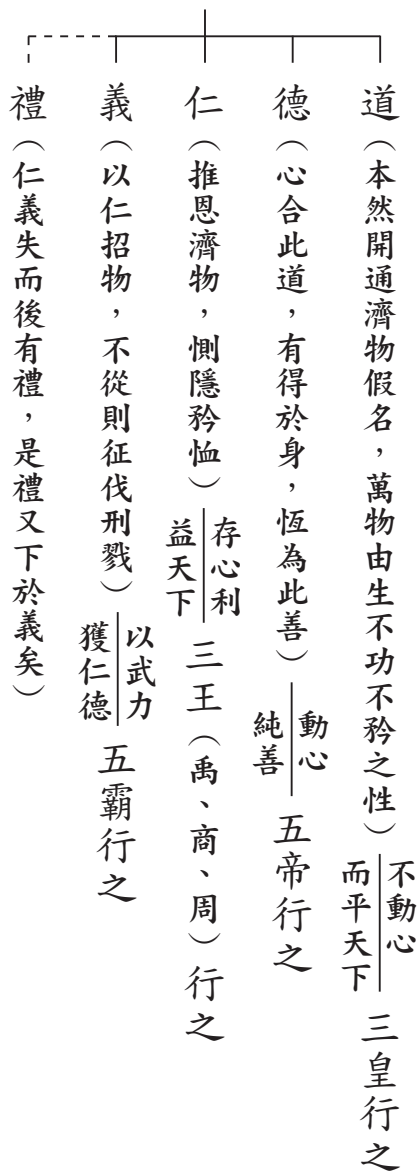 道（本然開通濟物假名，萬物由生不功不矜之性）不動心而平天下 三皇行之
德（心合此道，有得於身，恆為此善）動心純善 五帝行之
仁（推恩濟物，惻隱矜恤）存心利益天下 三王（禹、商、周）行之
義（以仁招物，不從則征伐刑戮）以武力獲仁德 五霸行之
禮（仁義失而後有禮，是禮又下於義矣）